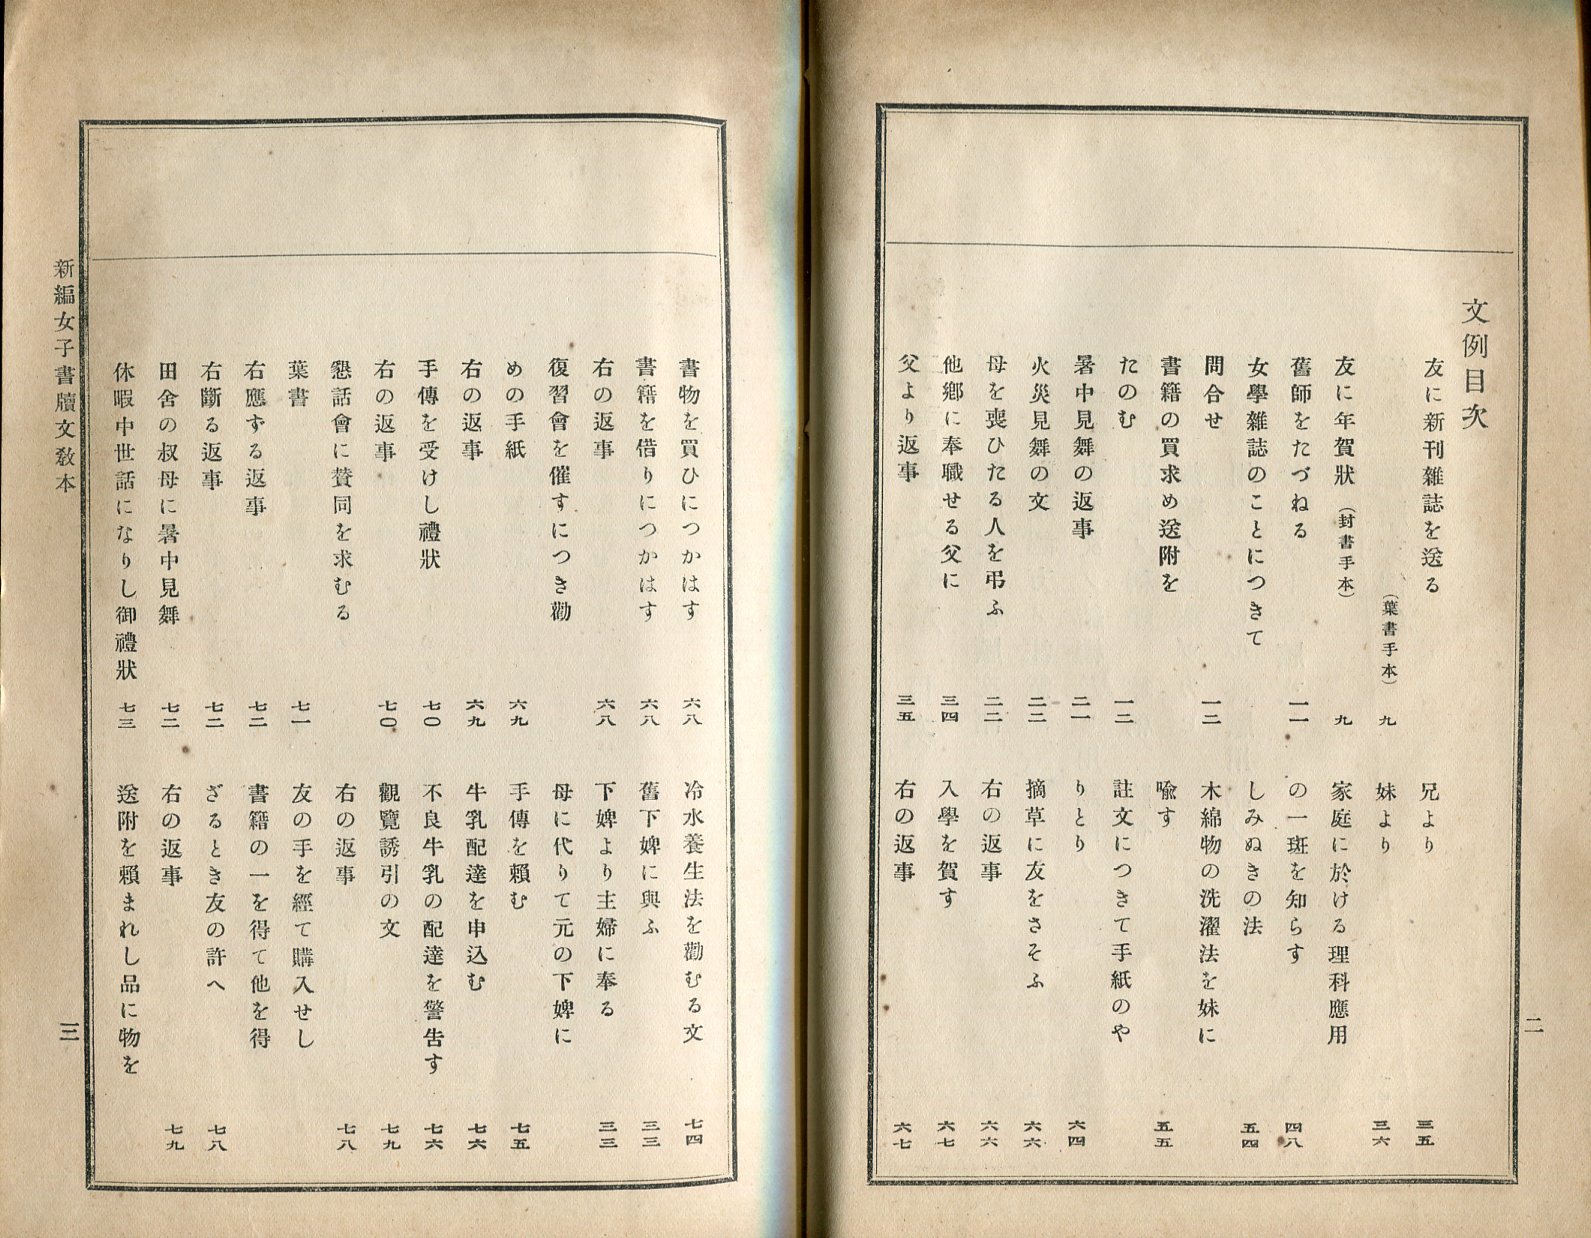 文例目次
友に新刊雑誌を送る
（葉書手本） 九
友に年賀狀（封書手本） 九
舊師をたづねる 一一
女學雜誌のことにつきて
問合せ 一二
書籍の買求め送附を
たのむ 一二
暑中見舞の返事 二一
火災見舞の文 二二
母を喪ひたる人を弔ふ 二二
他鄕に奉職せる父に 三四
父より返事 三五
兄より 三五
妹より 三六
家庭に於ける理科應用
の一斑を知らす 四八
しみぬきの法 五四
木綿物の洗濯法を妹に
喩す 五五
註文につきて手紙のや
りとり 六四
摘草に友をさそふ 六六
右の返事 六六
入學を賀す 六七
右の返事 六七
二
書物を買ひにつかはす 六八
書籍を借りにつかはす 六八
右の返事 六八
復習會を催すにつき勸
めの手紙 六九
右の返事 六九
手傳を受けし禮狀 七〇
右の返事 七〇
懇話會に賛同を求むる
葉書 七一
右應ずる返事 七二
右斷る返事 七二
田舍の叔母に暑中見舞 七二
休暇中世話になりし御禮狀 七三
冷水養生法を勸むる文 七四
舊下婢に與ふ 三三
下婢より主婦に奉る 三三
母に代りて元の下婢に
手傳を賴む 七五
牛乳配達を申込む 七六
不良牛乳の配達を警吿す 七六
觀覽誘引の文 七九
右の返事 七八
友の手を經て購入せし
書籍の一を得て他を得
ざるとき友の許へ 七八
右の返事 七九
送附を賴まれし品に物を
新編女子書牘文敎本
三